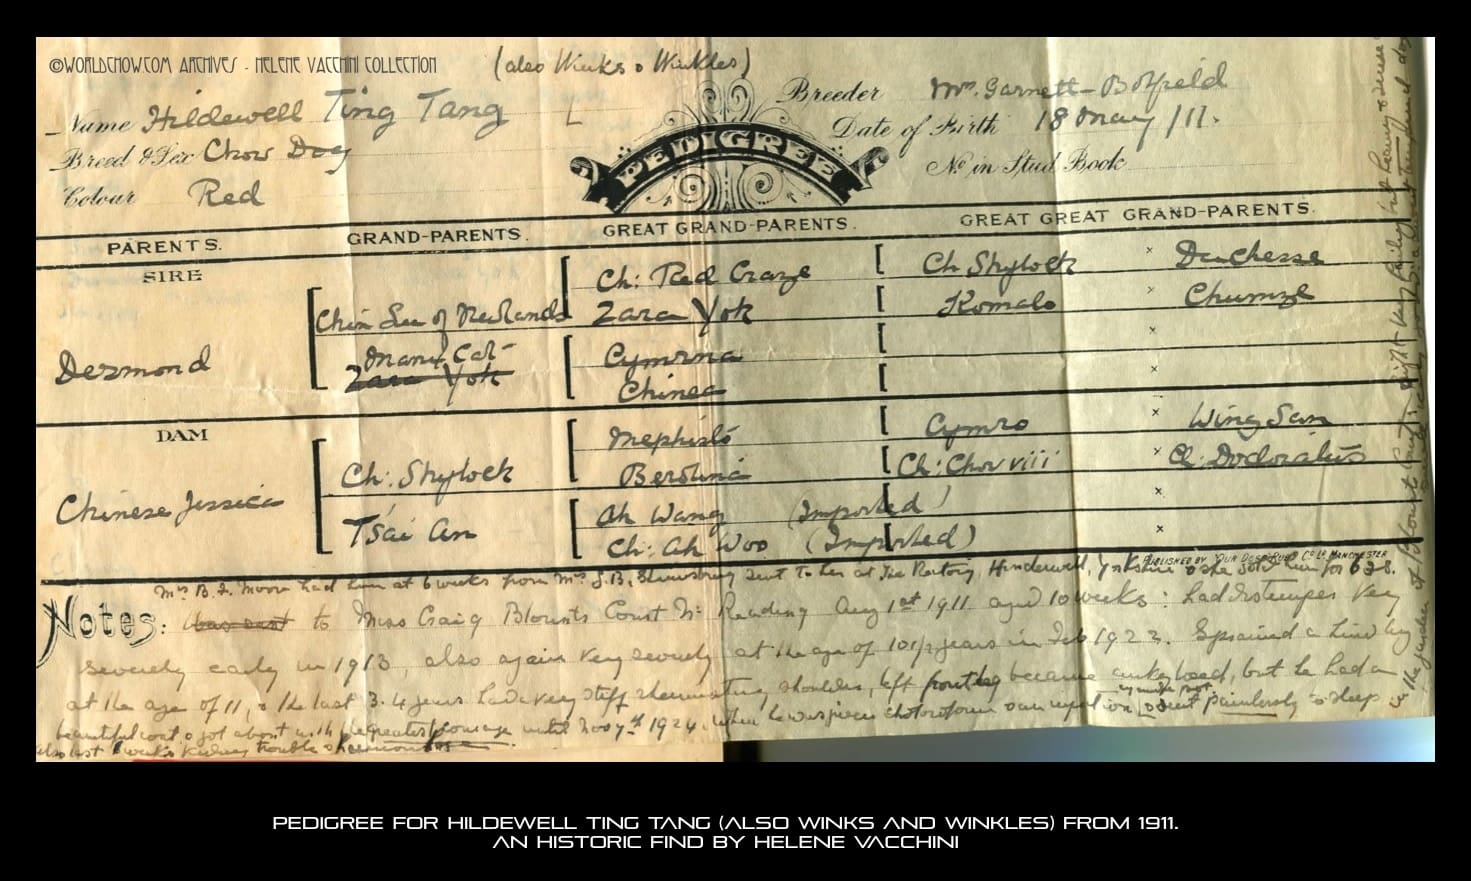 ©WORLDCHOW.COM ARCHIVES - HELENE VACCHINI COLLECTION
(also Winks & Winkles)
Name Hildewell Ting Tang
Breed & Sex Chow Dog
Colour Red
PEDIGREE
Breeder Mrs. Garnett-Botfield
Date of Birth 18 May /11.
No in Stud Book
PARENTS. GRAND-PARENTS. GREAT GRAND-PARENTS. GREAT GREAT GRAND-PARENTS.
SIRE
Desmond
Chin Lu of
Many Cat
Zara Yok
Ch: Red Craze
Zara Yok
Cymrna
Chinea
Ch Shylock × Duchesse
Komalo × Chumze
×
×
DAM
Chinese Jessica
Ch: Shylock
Tsai An
Mephisto
Berolina
Ah Wang (Imported)
Ch: Ah Woo (Imported)
Cymro × Wing San
Ch: Chow viii × Ch:
×
×
PUBLISHED BY "OUR DOGS" PUBG Co LD MANCHESTER
Mrs B. F. Moore had him at 6 weeks from Mrs G. B. sent to her at The Rectory, Hinderwell, Yorkshire & she sold him for
Notes: was sent to Miss Craig Blounts Court Nr Reading Aug 1st 1911 aged 10 weeks: had distemper very
severely early in 1913, also again very severely at the age of 10 1/2 years in Feb 1922. Sprained a hind leg
at the age of 11, & the last 3.4 years had very stiff shoulders, left front leg became, but he had a
beautiful coat & got about with the greatest courage until Novr 1924. When he was given chloroform & sent painlessly to sleep
also last weeks kidney trouble
PEDIGREE FOR HILDEWELL TING TANG (ALSO WINKS AND WINKLES) FROM 1911.
AN HISTORIC FIND BY HELENE VACCHINI